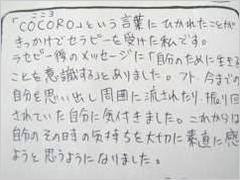 こころ
「COCORO」という言葉にひかれたことが
きっかけでセラピーを受けた私です。
ラセピー後のメッセージに「自分のために生きる
ことを意識する」とありました。フト、今までの
自分を思い出し周囲に流されたり、振り回
されていた自分に気付きました。これからは
自分のその日の気持ちを大切に素直に感じ
ようと思うようになりました。